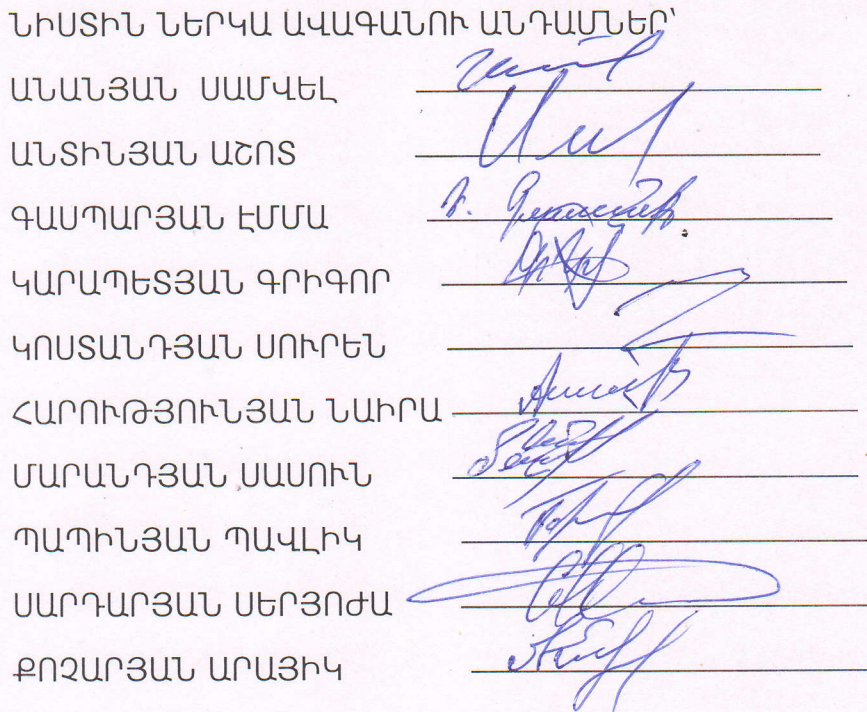 ՆԻՍՏԻՆ ՆԵՐԿԱ ԱՎԱԳԱՆՈՒ ԱՆԴԱՄՆԵՐ՝
ԱՆԱՆՅԱՆ ՍԱՄՎԵԼ
ԱՆՏԻՆՅԱՆ ԱՇՈՏ
ԳԱՍՊԱՐՅԱՆ ԷՄՄԱ
ԿԱՐԱՊԵՏՅԱՆ ԳՐԻԳՈՐ
ԿՈՍՏԱՆԴՅԱՆ ՍՈՒՐԵՆ
ՀԱՐՈՒԹՅՈՒՆՅԱՆ ՆԱԻՐԱ
ՄԱՐԱՆԴՅԱՆ ՍԱՍՈՒՆ
ՊԱՊԻՆՅԱՆ ՊԱՎԼԻԿ
ՍԱՐԴԱՐՅԱՆ ՍԵՐՅՈԺԱ
ՔՈՉԱՐՅԱՆ ԱՐԱՅԻԿ